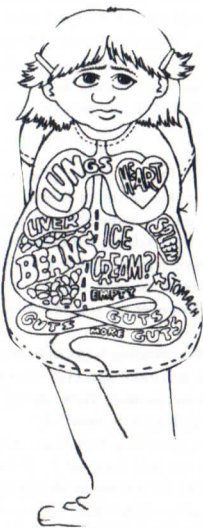 LUNGS
HEART
LIVER
SPLEEN
BEANS
ICE
CREAM?
EMPTY
STOMACH
GUTS
GUTS
MORE GUTS